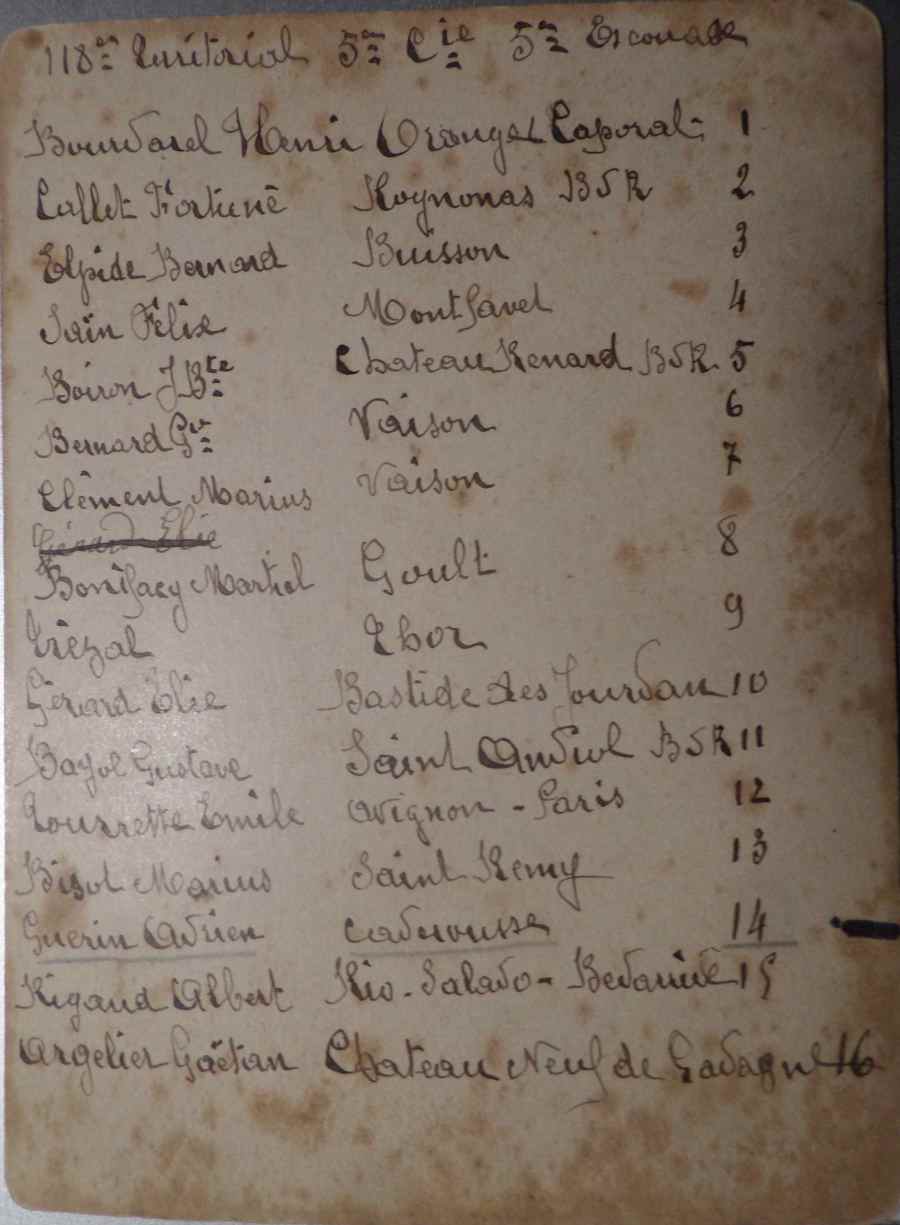 118em territorial 5em Cie 5em Escouade
Bourdarel Henri Orange Caporal 1
Callet Fortuné Rognonas BDR 2
Elpide Bernard Buisson 3
Saïn Félix Montfavet 4
Boiron J Bte Chateau Renard BDR 5
Bernard Gve Vaison 6
Clément Marius Vaison 7
Gérard Elie
Bonifacy Martial Goult 8
Trézal 9
Gérard Elie Bastide des Jourdan 10
Bayol Gustave Saint Andiol BDR 11
Tourrette Emile Avignon - Paris 12
Bizot Marius Saint Remy 13
Guerin Adrien Caderousse 14
Rigaud Albert Rio-Salado - Bedarride 15
Argelier Gaëtan Chateau Neuf de Gadagne 16